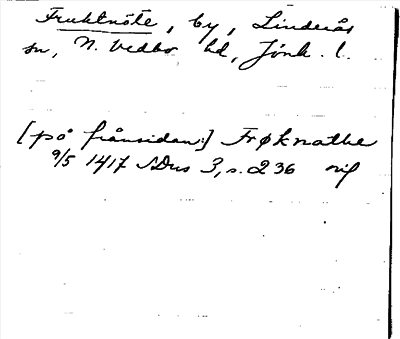 Fruktnöte, by, Linderås
sn, N. Vedbo hd, Jönk. l.
[på frånsidan:] Frøknathe
9/5 1417 SDns 3, s. 236 orig